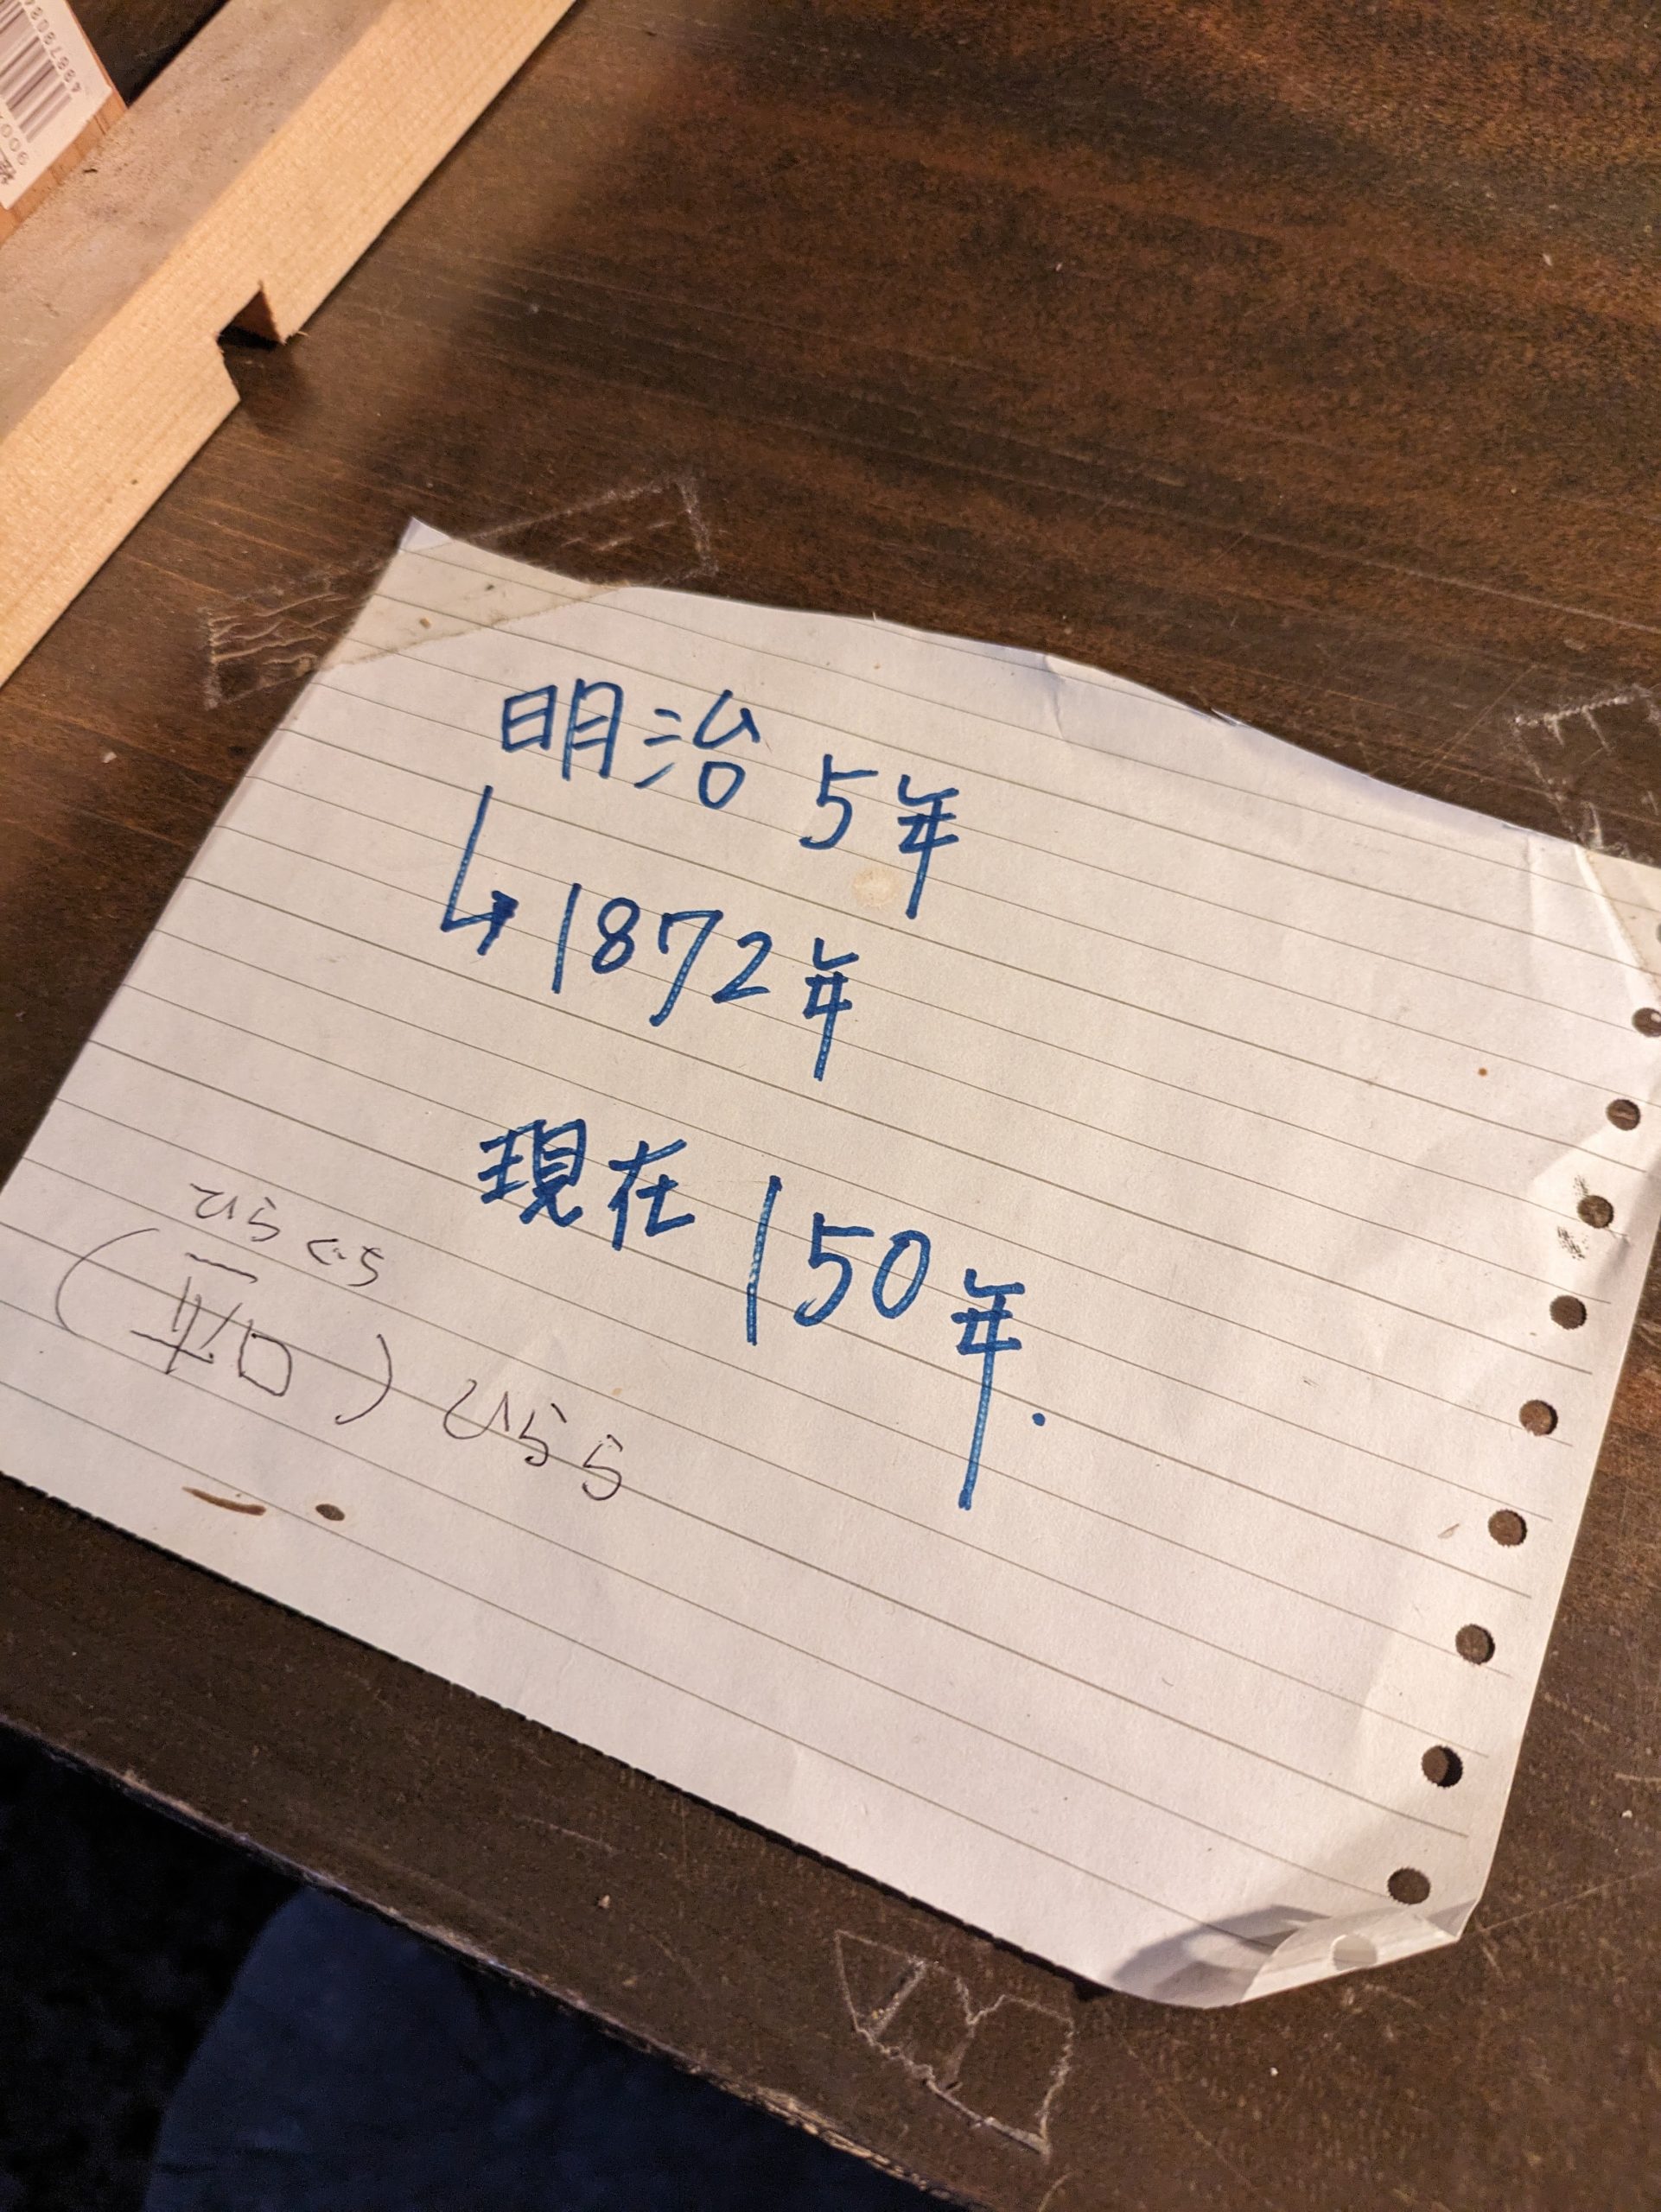 明治 5年
↳1872年
現在 150年.
ひらぐち
(平口) ひらら